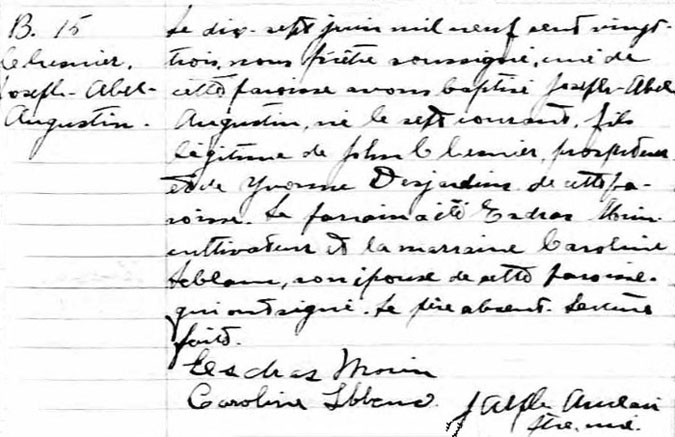 B. 15
Chesnier,
Joseph-Abel-
Augustin.
Le dix-sept juin mil neuf cent vingt-
trois, nous prêtre soussigné, curé de
cette paroisse avons baptisé Joseph-Abel
Augustin, né le sept courant, fils
légitime de John Chesnier, prospecteur
et de Yvonne Desjardins de cette pa-
roisse. Le parrain a été Esdras Morin
cultivateur et la marraine Caroline
Leblanc, son épouse de cette paroisse
qui ont signé. Le père absent. Lecture
faite.
Esdras Morin
Caroline Lbbanc
J Alph.
Ptre. curé.